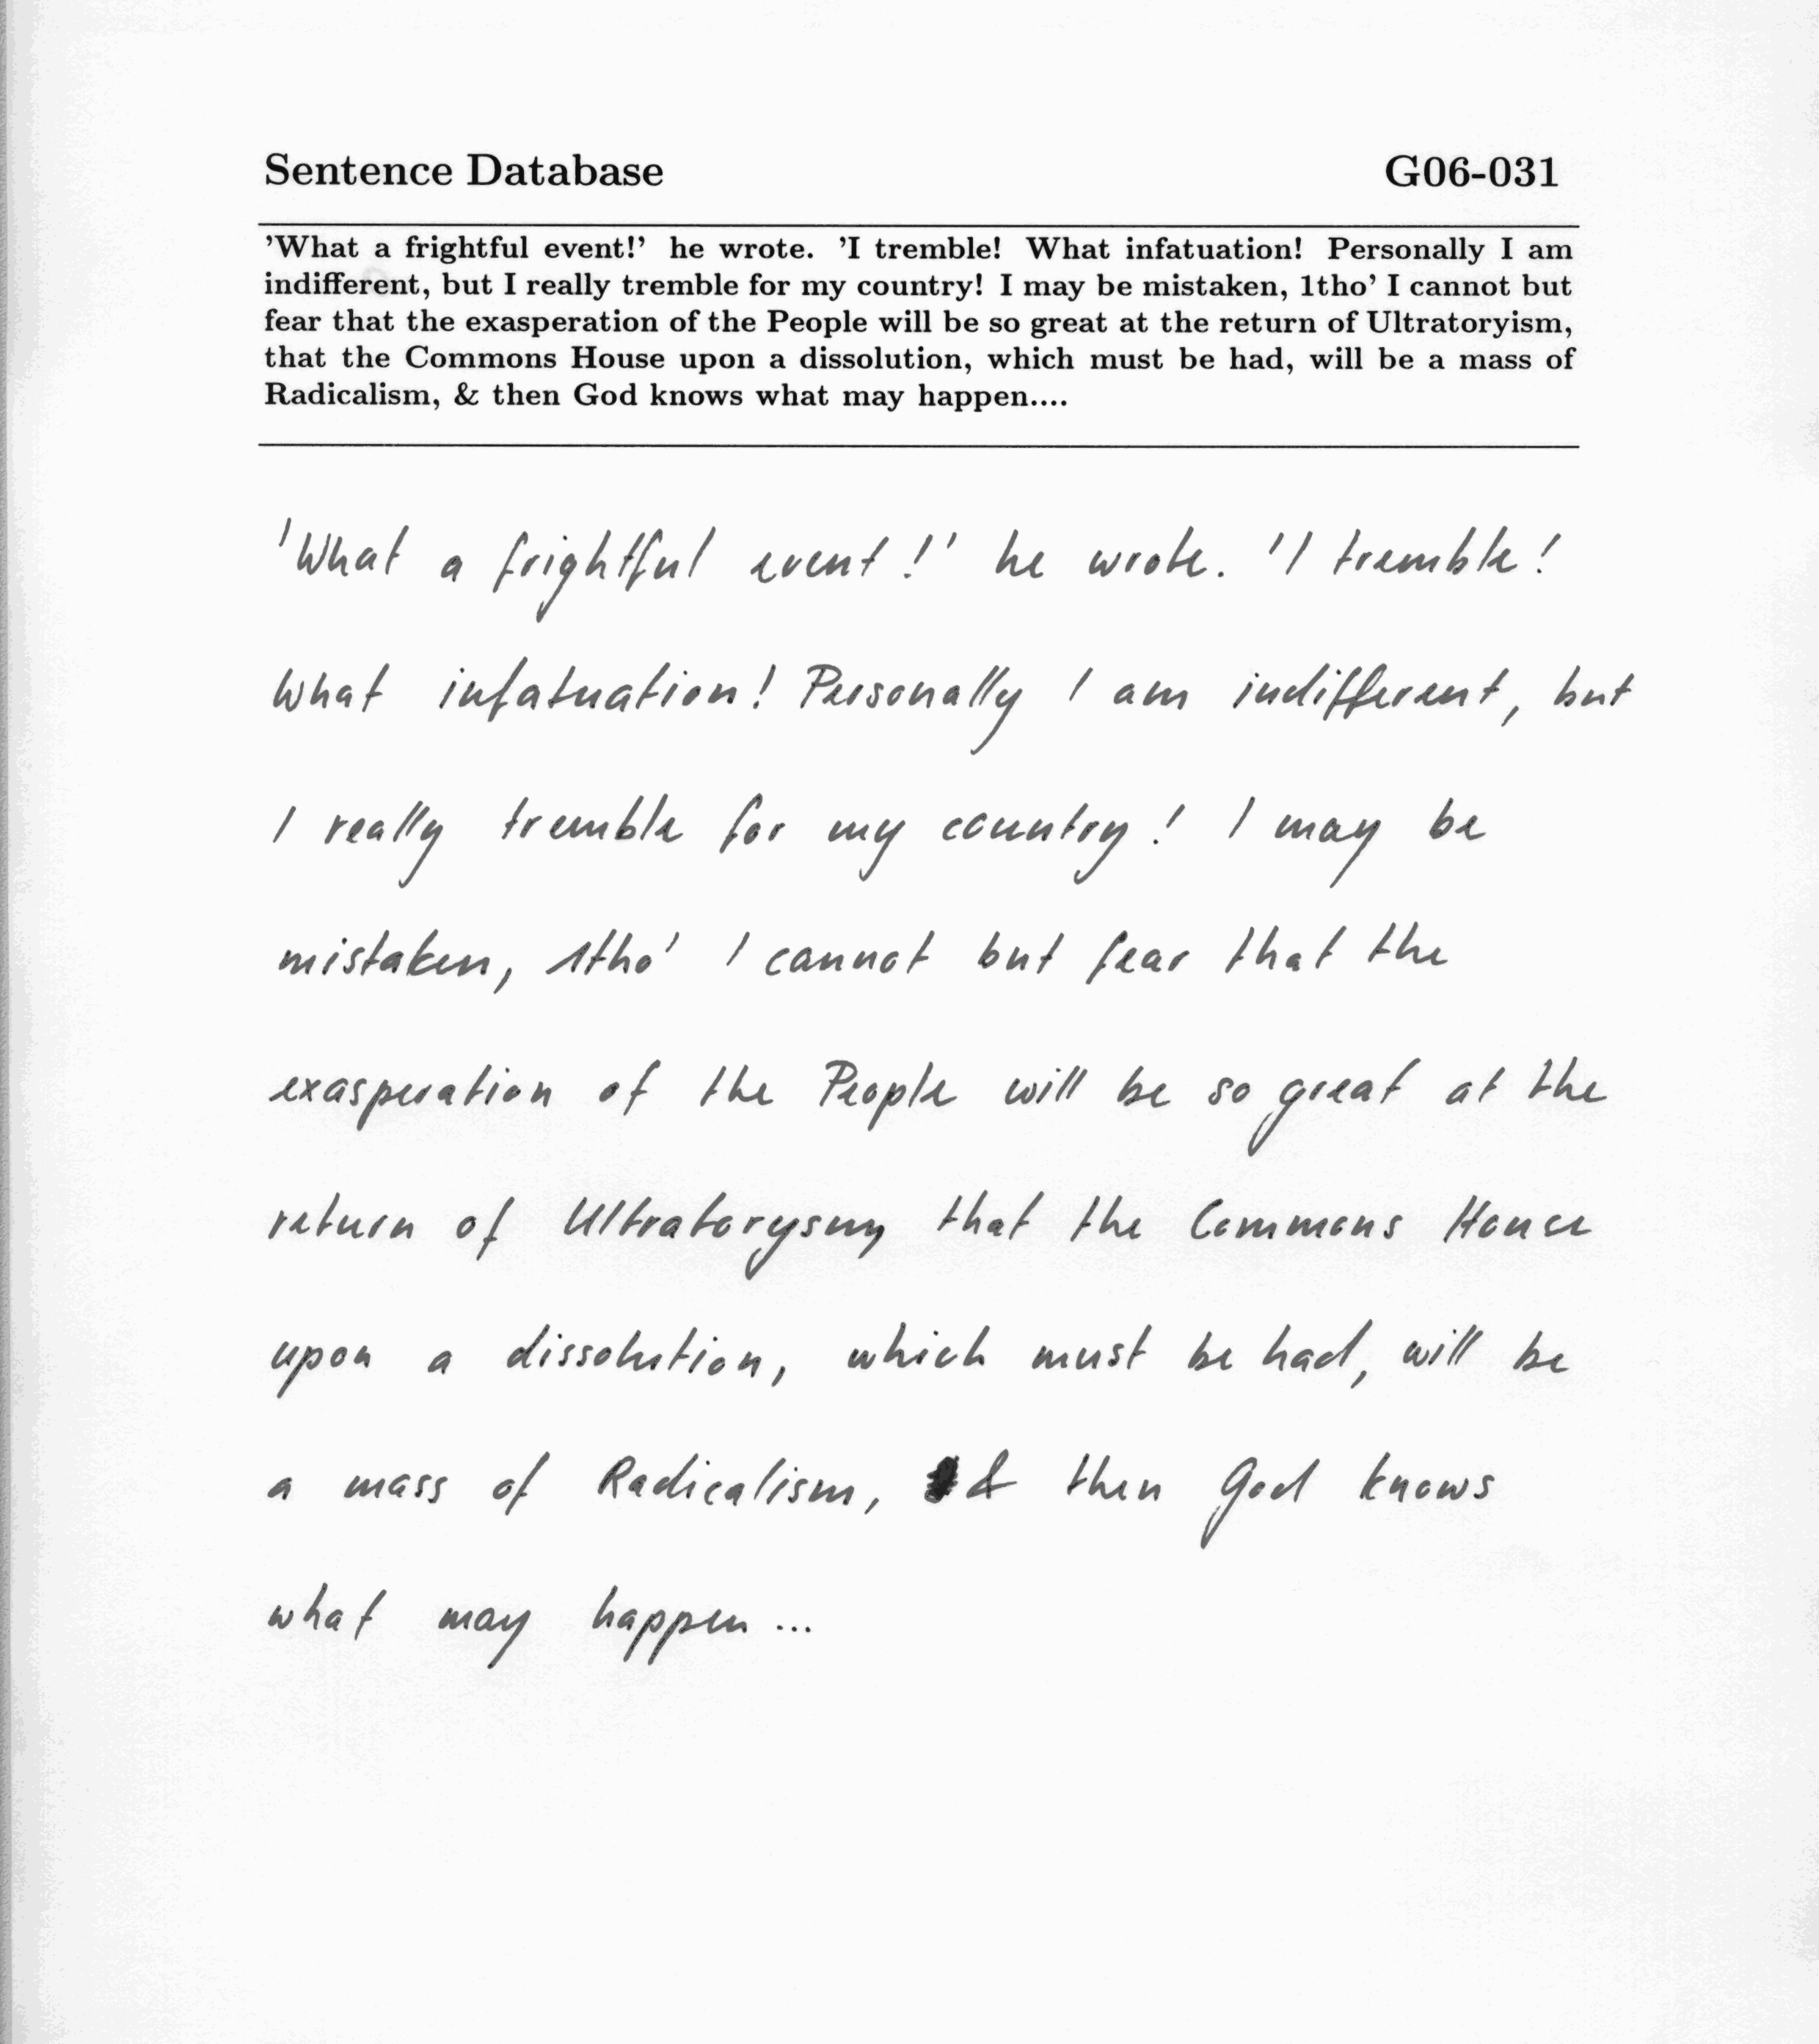 Sentence Database G06-031
'What a frightful event!' he wrote. 'I tremble! What infatuation! Personally I am
indifferent, but I really tremble for my country! I may be mistaken, 1tho' I cannot but
fear that the exasperation of the People will be so great at the return of Ultratoryism,
that the Commons House upon a dissolution, which must be had, will be a mass of
Radicalism, & then God knows what may happen....
'What a frightful event!' he wrote. 'I tremble!
What infatuation! Personally I am indifferent, but
I really tremble for my country! I may be
mistaken, 1tho' I cannot but fear that the
exasperation of the People will be so great at the
return of Ultratorysm, that the Commons House
upon a dissolution, which must be had, will be
a mass of Radicalism, & then God knows
what may happen...